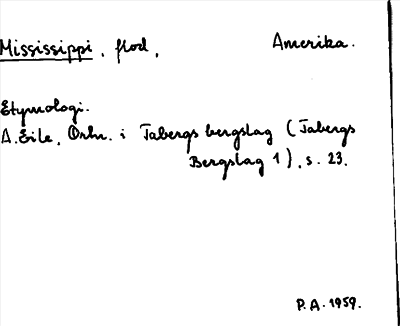 Mississippi, flod, Amerika.
Etymologi.
A. Eile, Ortn. i Tabergs bergslag (Tabergs
Bergslag 1), s. 23.
P.A. 1959.